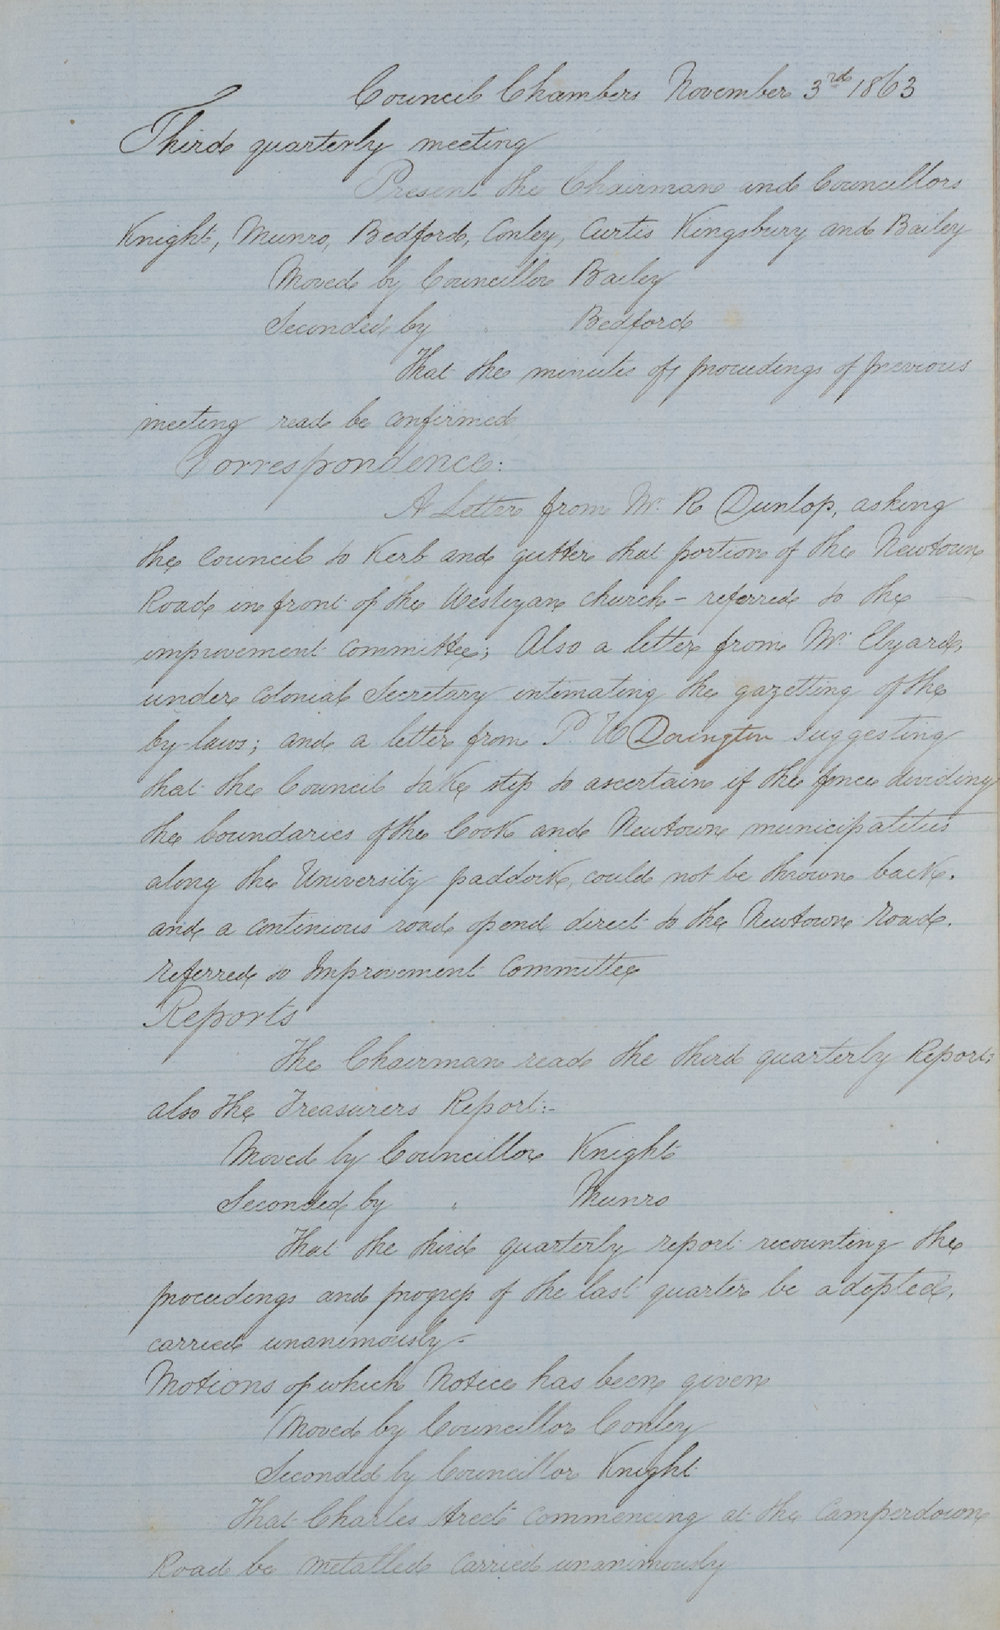 Council Chambers November 3rd 1863
Third quarterly meeting
Present the Chairman and Councillors
Knight, Munro, Bedford, Conley, Curtis Kingsbury and Bailey
Moved by Councillor Bailey
Seconded by " Bedford
That the minutes of proceedings of previous
meeting read be confirmed
Correspondence:
A Letter from Mr. R Dunlop, asking
the Council to Kerb and gutter that portion of the Newtown
Road in front of the Wesleyan church - referred to the
improvement committee; Also a letter from Mr. Elyard,
under colonial Secretary intimating the gazetting of the
by-laws; and a letter from P. Dorington suggesting
that the Council take step to ascertain if the fence dividing
the boundaries of the Cook and Newtown municipalities
along the University paddock, could not be thrown back.
and a continious road opend direct to the Newtown Road.
referred to Improvement Committee
Reports
The Chairman read the third quarterly Report:
also the Treasurers Report:-
Moved by Councillor Knight
Seconded by " Munro
That the third quarterly report recounting the
proceedings and progress of the last quarter be adopted,
carried unanimously-
Motions of which Notice has been given
Moved by Councillor Conley
Seconded by Councillor Knight
That Charles Street commencing at the Camperdown
Road be metalled carried unanimously